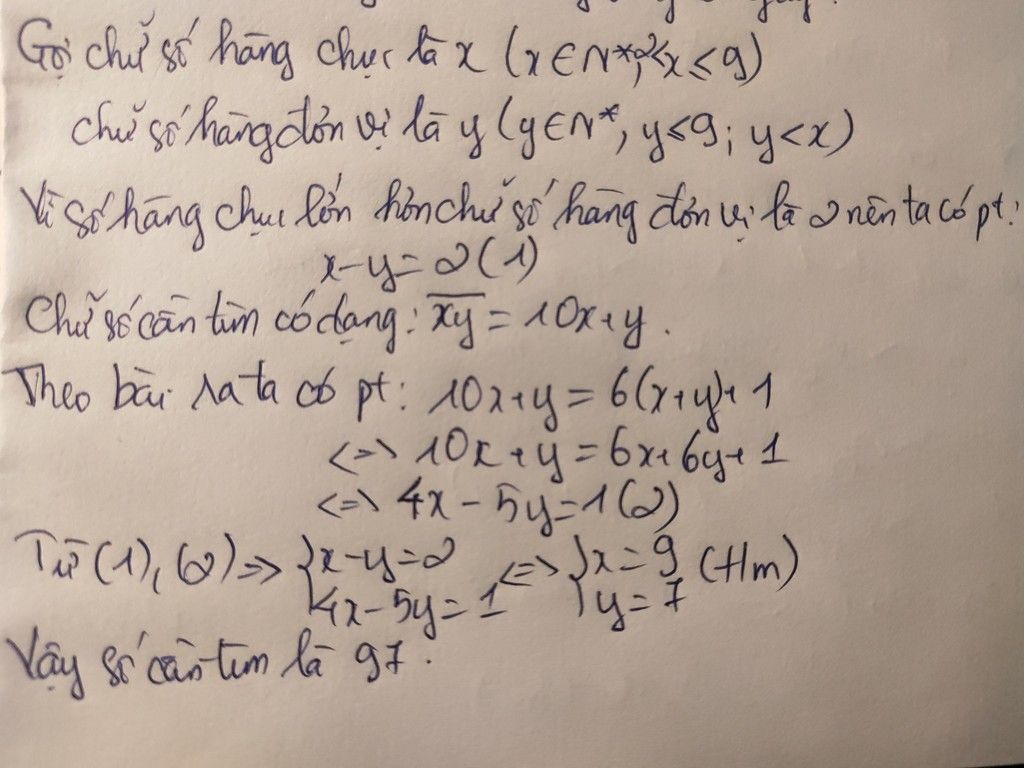 Gọi chữ số hàng chục là x (x ∈ N*, 2<x ≤ 9)
chữ số hàng đơn vị là y (y ∈ N*, y ≤ 9; y < x)
Vì số hàng chục lớn hơn chữ số hàng đơn vị là 2 nên ta có pt:
x - y = 2 (1)
Chữ số cần tìm có dạng: \overline{xy} = 10x + y.
Theo bài ra ta có pt: 10x + y = 6(x + y) + 1
<=> 10x + y = 6x + 6y + 1
<=> 4x - 5y = 1 (2)
Từ (1), (2) => { x - y = 2 <=> { x = 9 (tm)
4x - 5y = 1 y = 7
Vậy số cần tìm là 97.